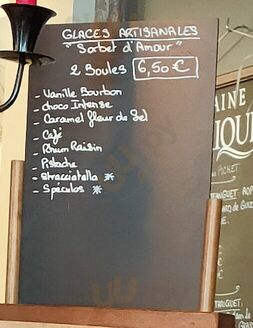 GLACES ARTISANALES
"Sorbet d'Amour"
2 Boules 6,50€
- Vanille Bourbon
- choco Intense
- Caramel fleur de Sel
- Café
- Rhum Raisin
- Pistache
- Stracciatella *
- Spéculos *
AINE
IQU